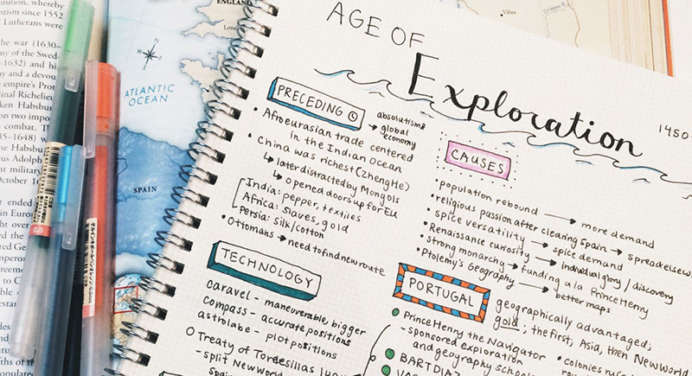 AGE OF
Exploration
1450
PRECEDING
absolutism &
→ global
economy
• Afroeurasian trade centered
in the Indian Ocean
• China was richest (Zhenghe)
↳ later distracted by Mongols
↳ opened doors up for EU
India: pepper, textiles
Africa: slaves, gold
Persia: silk/cotton
• Ottomans → need to find new route
CAUSES
• population rebound → more demand
• religious passion after clearing Spain → spread elsewhere
• spice versatility → spice demand
• Renaissance curiosity → individual glory / discovery
• strong monarchy → funding a la Prince Henry
• Ptolemy's Geography → better maps
TECHNOLOGY
caravel - maneuverable, bigger
compass - accurate positions
astrolabe - plot positions
○ Treaty of Tordesillas
- split New World
Spain
PORTUGAL
geographically advantaged;
gold; the first; Asia, then New World
• Prince Henry the Navigator
- sponsored exploration
and geography schools
BART DIAZ
• colonies
ENGLAND
ATLANTIC
OCEAN
SPAIN
whereby
since 1552
Lutherans were
the war (1630–
of the Swed-
-1632) and his
and a devou
empire's Pro
inal Richelieu
ken Habsbu
on two impo
combat. T
5–1648) wh
he Habsbu
us Adolph
military
October 1
ended in